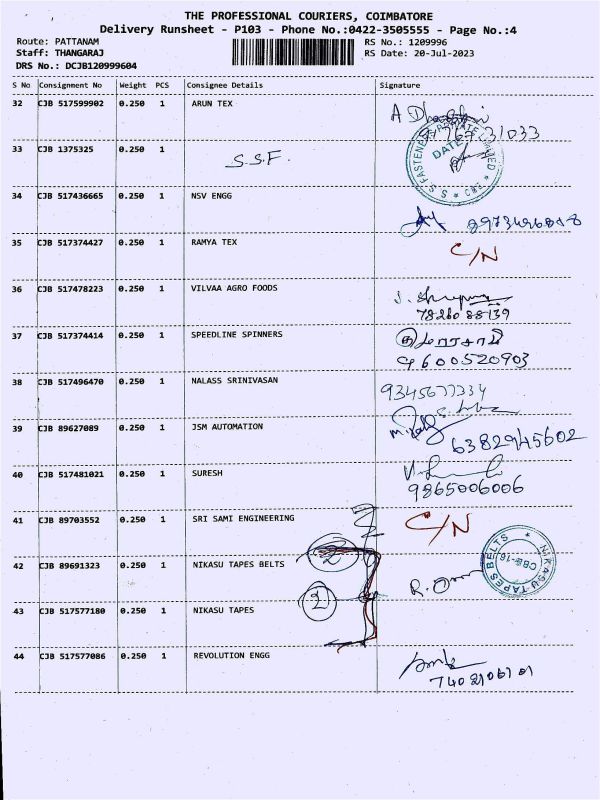 THE PROFESSIONAL COURIERS, COIMBATORE
Delivery Runsheet - P103 - Phone No.:0422-3505555 - Page No.:4
Route: PATTANAM RS No.: 1209996
Staff: THANGARAJ RS Date: 20-Jul-2023
DRS No.: DCJB120999604
S No Consignment No Weight PCS Consignee Details Signature
32 CJB 517599902 0.250 1 ARUN TEX
33 CJB 1375325 0.250 1 S.S.F.
34 CJB 517436665 0.250 1 NSV ENGG
35 CJB 517374427 0.250 1 RAMYA TEX C/N
36 CJB 517478223 0.250 1 VILVAA AGRO FOODS
37 CJB 517374414 0.250 1 SPEEDLINE SPINNERS
9600520903
38 CJB 517496470 0.250 1 NALASS SRINIVASAN
39 CJB 89627089 0.250 1 JSM AUTOMATION
6382945602
40 CJB 517481021 0.250 1 SURESH
9865006006
41 CJB 89703552 0.250 1 SRI SAMI ENGINEERING C/N
42 CJB 89691323 0.250 1 NIKASU TAPES BELTS 2
NIKASU TAPES BELTS
43 CJB 517577180 0.250 1 NIKASU TAPES 2
44 CJB 517577086 0.250 1 REVOLUTION ENGG